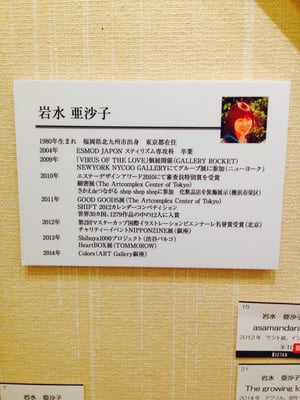 岩水 亜沙子
1980年生まれ 福岡県北九州市出身 東京都在住
2004年 ESMOD JAPON スティリズム専攻科 卒業
2009年 「VIRUS OF THE LOVE」個展開催 (GALLERY ROCKET)
NEWYORK NYCOO GALLERYにてグループ展に参加 (ニューヨーク)
2010年 エスエーデザインアワード2010にて審査員特別賞を受賞
細密展 (The Artcomplex Center of Tokyo)
さかえdeつながる shop shop shopに参加 化粧品店を装飾展示 (横浜市栄区)
2011年 GOOD GOODS展 (The Artcomplex Center of Tokyo)
SHIFT 2012カレンダーコンペティション
世界30カ国、1279作品の中の12人に入賞
2012年 第2回マスターカップ国際イラストレーションビエンナーレ名誉賞受賞 (北京)
チャリティーイベントNIPPONZINE展 (銀座)
2013年 Shibuya1000プロジェクト (渋谷パルコ)
HeartBOX展 (TOMMOROW)
2014年 Colors (ART Gallery銀座)
16
岩水 亜沙子
asamandara
2012年 ケント紙、イン
ISETAN
21
岩水 亜沙子
The growing
2014年 アクリル、
7
岩水 亜沙子